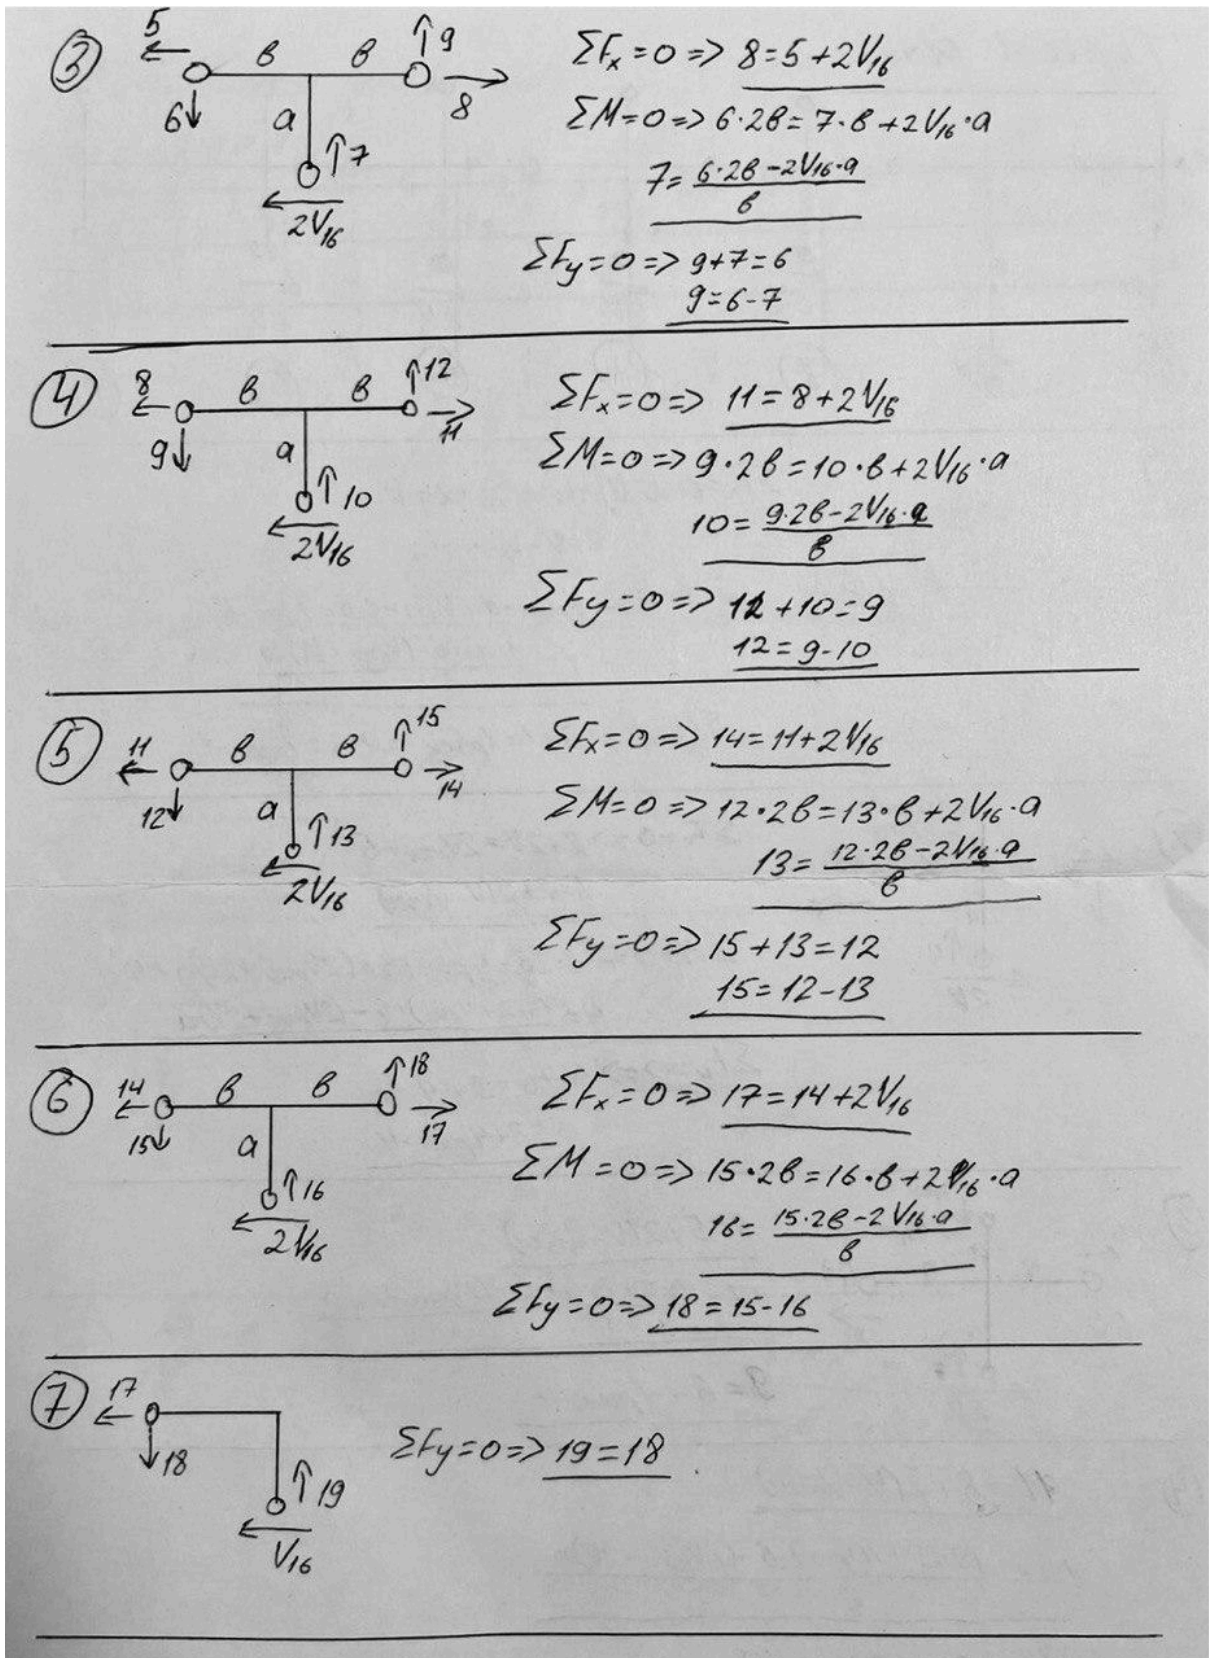 ③
5
в в
9
6
а
8
7
2V₁₆
ΣFₓ=0 => 8=5+2V₁₆
ΣM=0 => 6·2в=7·в+2V₁₆·а
7= (6·2в-2V₁₆·а)/в
ΣFy=0 => 9+7=6
9=6-7
④
8
в в
12
9
а
11
10
2V₁₆
ΣFₓ=0 => 11=8+2V₁₆
ΣM=0 => 9·2в=10·в+2V₁₆·а
10= (9·2в-2V₁₆·а)/в
ΣFy=0 => 12+10=9
12=9-10
⑤
11
в в
15
12
а
14
13
2V₁₆
ΣFₓ=0 => 14=11+2V₁₆
ΣM=0 => 12·2в=13·в+2V₁₆·а
13= (12·2в-2V₁₆·а)/в
ΣFy=0 => 15+13=12
15=12-13
⑥
14
в в
18
15
а
17
16
2V₁₆
ΣFₓ=0 => 17=14+2V₁₆
ΣM=0 => 15·2в=16·в+2V₁₆·а
16= (15·2в-2V₁₆·а)/в
ΣFy=0 => 18=15-16
⑦
17
18
19
V₁₆
ΣFy=0 => 19=18